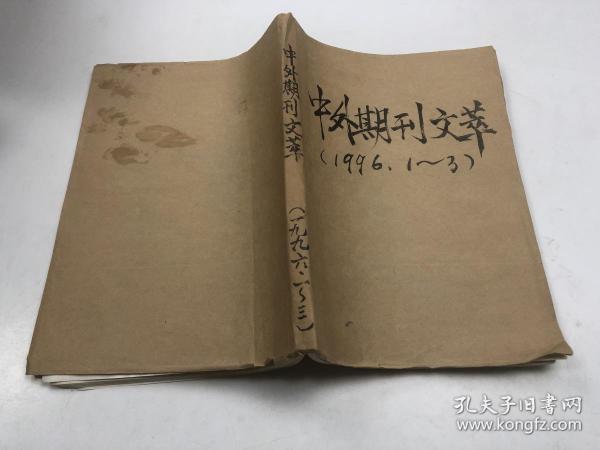 中外期刊文萃
(1996.1～3)
中外期刊文萃
(一九九六.一～三)
孔夫子旧书网
www.kongfz.com